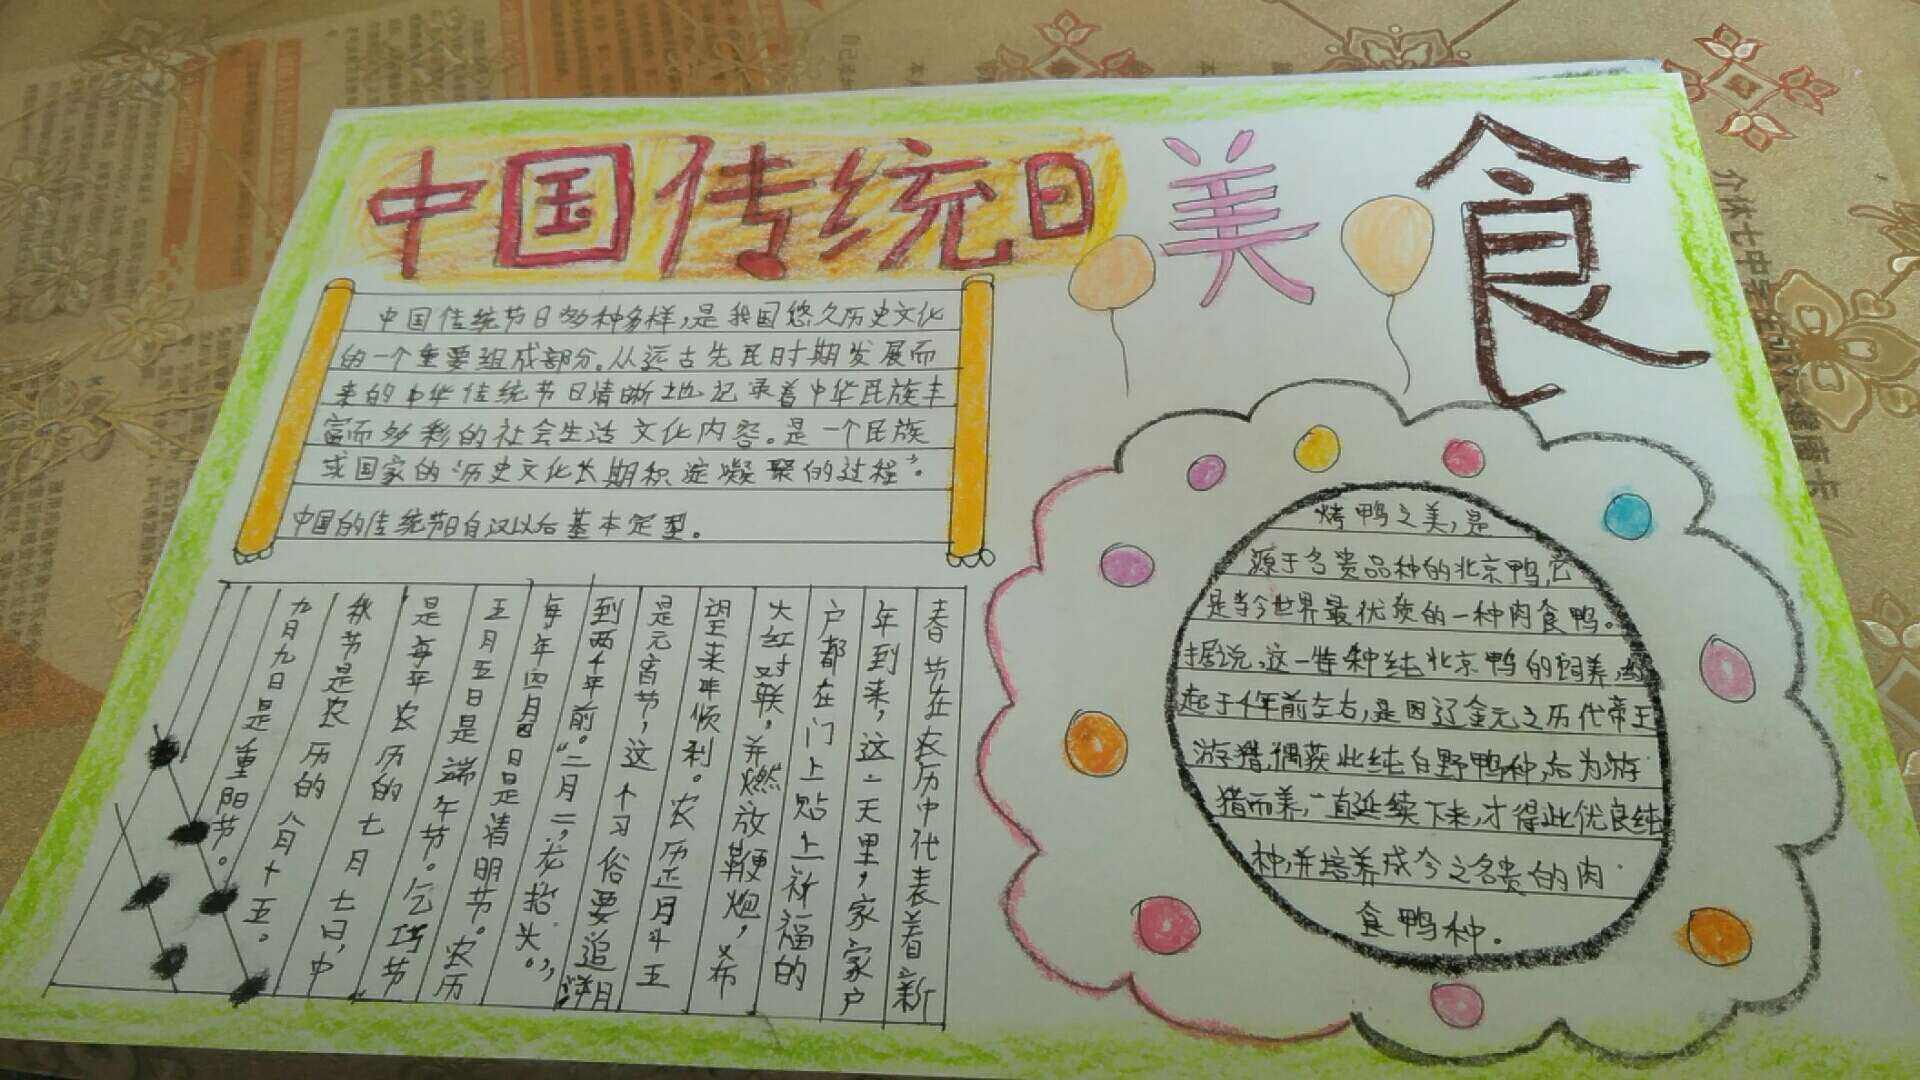 中国传统日
美
食
中国传统节日多种多样,是我国悠久历史文化
的一个重要组成部分。从远古先民时期发展而
来的中华传统节日清晰地记录着中华民族丰
富而多彩的社会生活文化内容。是一个民族
或国家的历史文化长期积淀凝聚的过程。
中国的传统节日自汉以后基本定型。
春节在农历中代表着新
年到来,这一天里,家家户
户都在门上贴上祈福的
大红对联,并燃放鞭炮,希
望来年顺利。农历正月十五
是元宵节,这个习俗要追
到两千年前。"二月二,龙抬头。",
每年四月四日是清明节。农历
五月五日是端午节。乞巧节
是每年农历的七月七日,中
秋节是农历的八月十五。
九月九日是重阳节。
烤鸭之美,是
源于名贵品种的北京鸭,它
是当今世界最优质的一种肉食鸭。
据说,这一特种纯北京鸭的饲养,
起于千年前左右,是因辽金元之历代帝王
游猎,偶获此纯白野鸭种,后为游
猎而养,一直延续下来,才得此优良纯
种,并培养成今之名贵的肉
食鸭种.